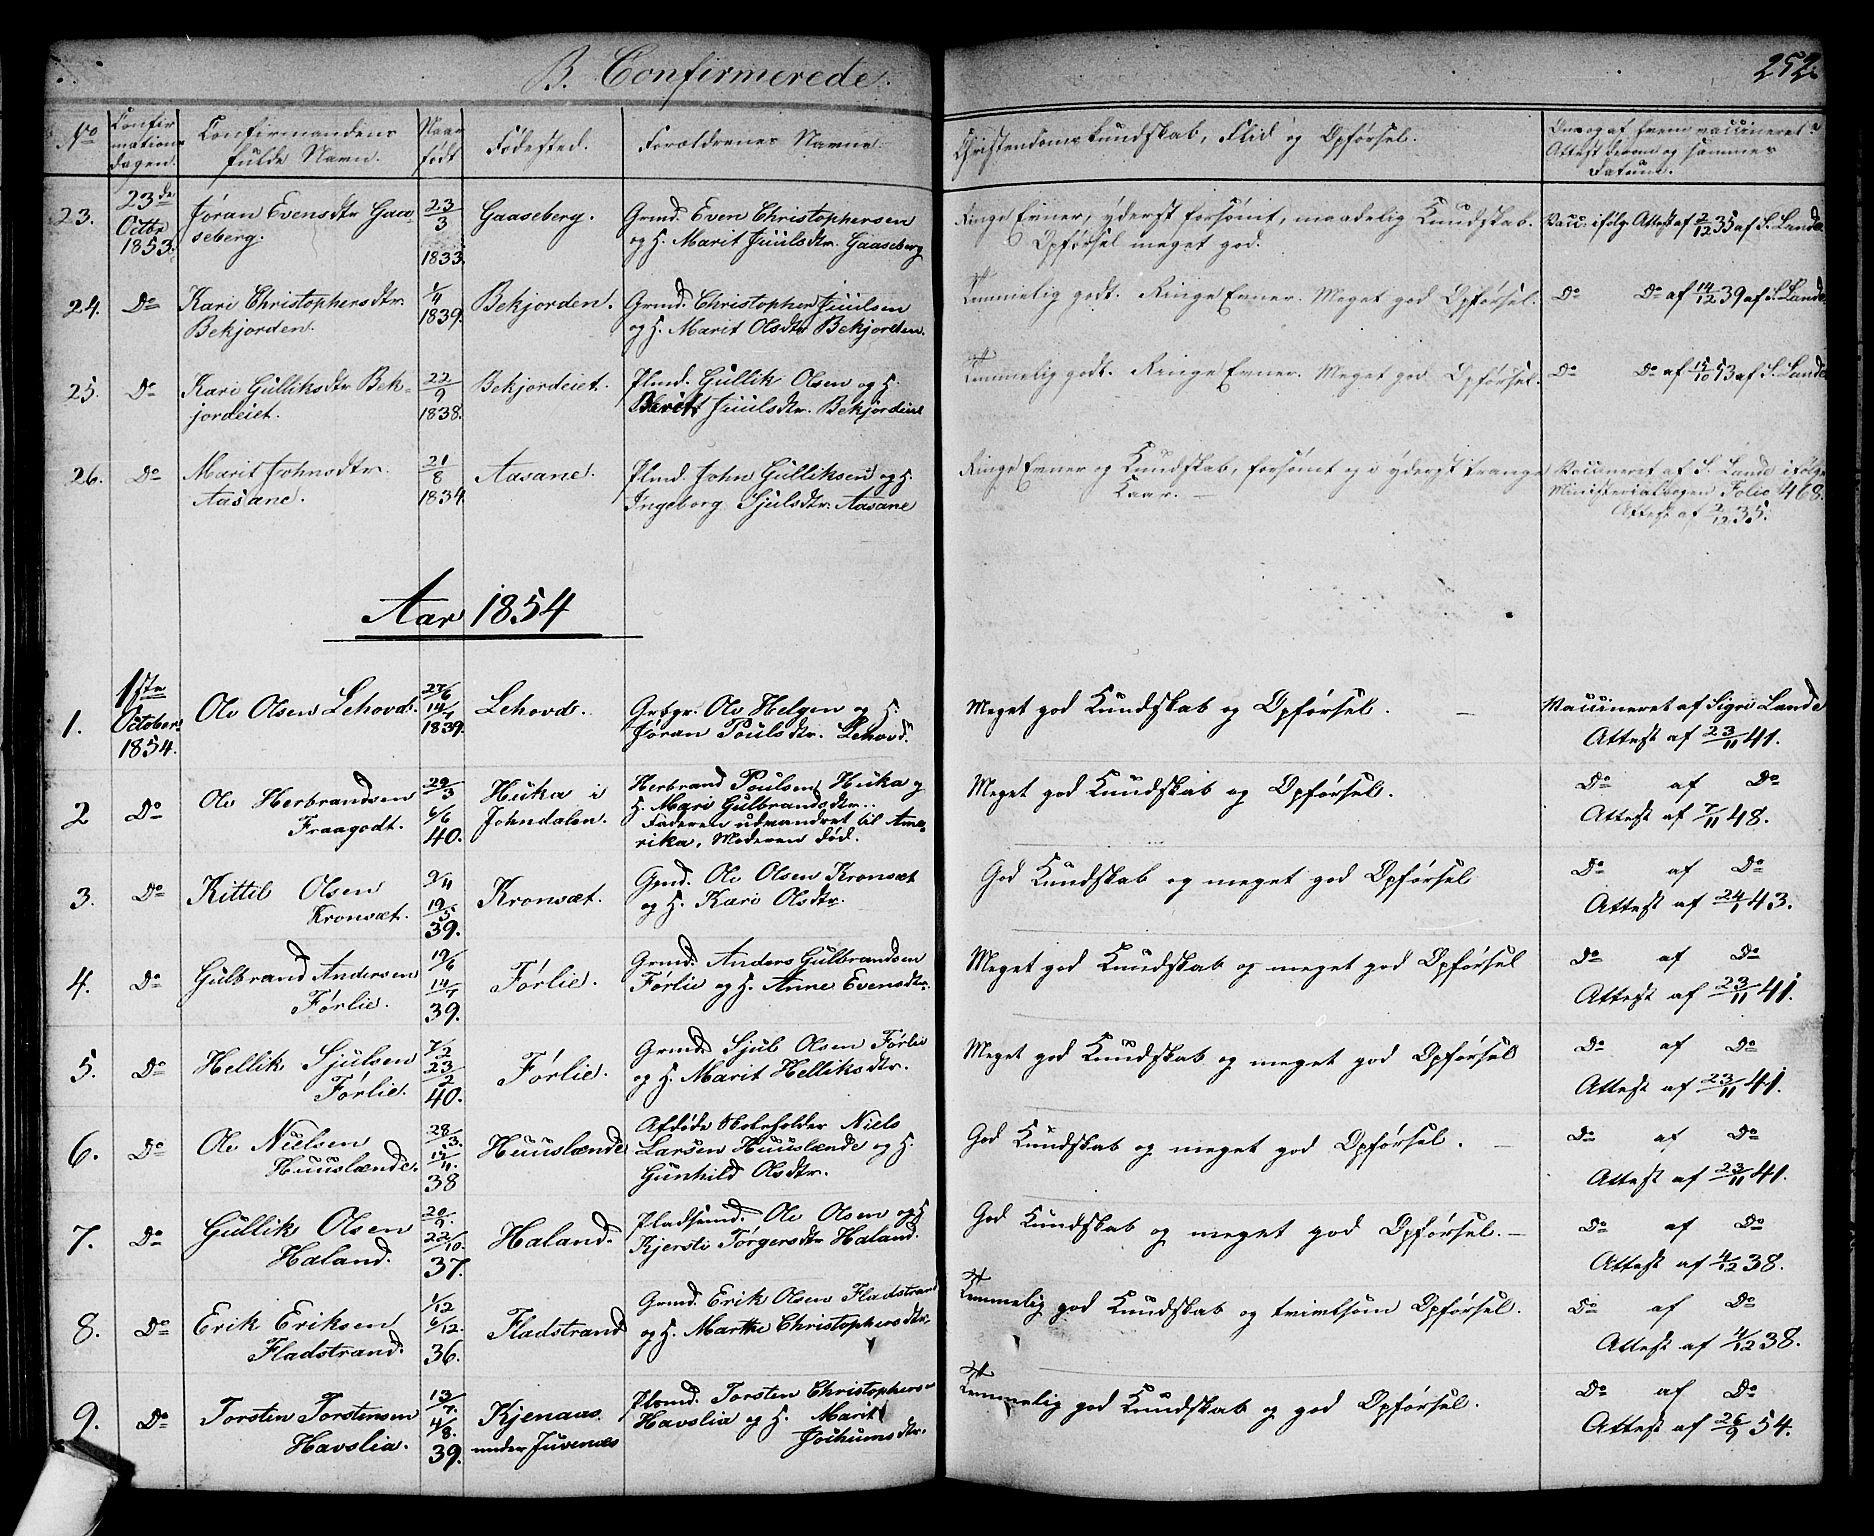 B. Confirmerede.
252
No
Confir
mations
dagen.
Confirmandens
fulde Navn.
Naar
født
Fødested.
Forældrenes Navne.
Christendoms Kundskab, Flid og Opførsel.
Om og af hvem vaccineret
Attest derom og sammes
Datum.
23.
23de
Octbr
1853.
Jøran Evensdtr Gaa
seberg.
23/3
1833.
Gaaseberg.
Grmd. Even Christophersen
og H. Marit Juulsdtr. Gaaseberg
Ringe Evner, yderst forsömt, maadelig Kundskab.
Opførsel meget god.
Vacc. ifølg. Attest af 2/12 35 af S. Lande
24.
Do
Kari Christophersdtr.
Bekjorden.
1/4
1839.
Bekjorden.
Grmd. Christopher Juulsen
og H. Marit Olsdtr Bekjorden.
Temmelig godt. Ringe Evner. Meget god Opførsel.
Do Do af 14/12 39 af S. Lande
25.
Do
Kari Gulliksdtr Bek-
jordeiet.
22/9
1838.
Bekjordeiet.
Plmd. Gullik Olsen og H.
Berit Juulsdtr. Bekjordeiet
Temmelig godt. Ringe Evner. Meget god Opførsel.
Do Do af 15/10 53 af S. Lande
26.
Do
Marit Johnsdtr.
Aasane.
21/8
1834
Aasane.
Plmd. John Gulliksen og H.
Ingeborg Sjulsdtr. Aasane
Ringe Evner og Kundskab, forsömt og i yderst trange
Kaar. —
Vaccineret af S. Lande ifølge
Ministerialbogen Folio 468.
Attest af 2/12 35.
Aar 1854
1.
1ste
October
1854.
Ole Olsen Lehovd.
27/6
14/7
1839.
Lehovd.
Grbgr. Ole Helgen og H.
Jøran Poulsdtr. Lehovd.
Meget god Kundskab og Opførsel. —
Vaccineret af Sigri Lande
Attest af 23/11 41.
2
Do
Ole Herbrandsen
Fraagodt.
20/3
6/6
40.
Huka i
Johndalen.
Herbrand Poulsen Huka og
H. Mari Gulbrandsdtr..
Faderen udvandret til Ame-
rika, Moderen død.
Meget god Kundskab og Opførsel.
Do af Do
Attest af 7/11 48.
3.
Do
Kittil Olsen
Kronsæt.
9/4
19/5
39.
Kronsæt.
Gmd. Ole Olsen Kronsæt
og H. Kari Olsdtr.
God Kundskab og meget god Opførsel
Do af Do
Attest af 24/1 43.
4.
Do
Gulbrand Andersen
Førlie.
19/6
14/7
39.
Førlie.
Grmd. Anders Gulbrandsen
Førlie og H. Anne Evensdtr.
Meget god Kundskab og meget god Opførsel
Do af Do
Attest af 23/11 41.
5.
Do
Hellik Sjulsen
Førlie.
7/2
23/2
40.
Førlie.
Grmd. Sjul Olsen Førlie
og H. Marit Helliksdtr.
Meget god Kundskab og meget god Opførsel
Do af Do
Attest af 23/11 41.
6.
Do
Ole Nielsen
Huuslænde.
28/3.
15/4.
38
Huuslænde
Afdøde Skoleholder Niels
Larsen Huuslænde og H.
Gunhild Olsdtr.
God Kundskab og meget god Opførsel. —
Do af Do
Attest af 23/11 41.
7.
Do
Gullik Olsen
Haland.
20/9.
22/10.
37.
Haland.
Pladsmd. Ole Olsen og H
Kjersti Torgersdtr Haland.
God Kundskab og meget god Opførsel. —
Do af Do
Attest af 4/12 38.
8.
Do
Erik Eriksen
Fladstrand.
1/12
6/12.
36.
Fladstrand
Grmd. Erik Olsen Fladstrand
og H. Marthe Christophersdtr.
Temmelig god Kundskab og tvivlsom Opførsel.
Do af Do
Attest af 4/12 38.
9.
Do
Torsten Torstensen
Havslia.
13/7.
4/8.
39.
Kjenaas
under Juvenæs
Plsmd. Torsten Christophersen
Havslia og H. Marit
Jochumsdtr.
Temmelig god Kundskab og god Opførsel.
Do af Do
Attest af 26/9 54.